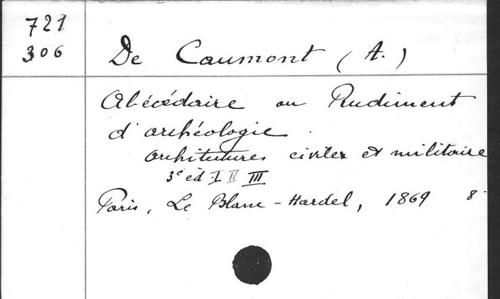 721
306
De Caumont (A.)
Abécédaire ou Rudiment
d'archéologie.
architutures civiles et militaire
3e éd I II III
Paris, Le Blanc-Hardel, 1869 8